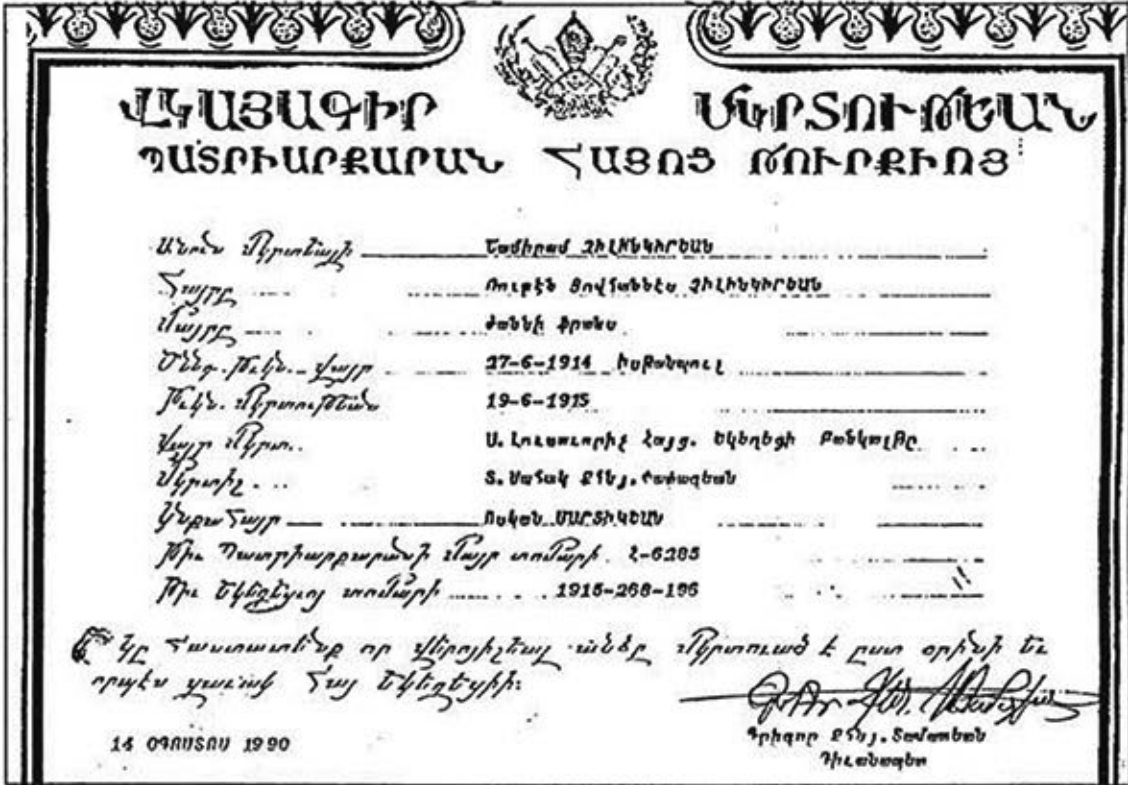 ՎԿԱՅԱԳԻՐ ՄԿՐՏՈՒԹԵԱՆ
ՊԱՏՐԻԱՐՔԱՐԱՆ ՀԱՅՈՑ ԹՈՒՐՔԻՈՅ
Անուն Մկրտելոյի ՉԻԼԻՆԿԻՐԵԱՆ
Հայրը Ռուբէն Յովհաննէս ՉԻԼԻՆԿԻՐԵԱՆ
Մայրը ժաննի Քրանս
Ծննդ. Թւկն. Վայր 27-6-1914 Իսթանպուլ
Թւկն. Մկրտութեան 19-6-1915
Վայր Մկրտ. Ս. Լուսաւորիչ Հայց. Եկեղեցի Բանկալթը
Մկրտիչ Տ. Սահակ Քհնյ. Փափազեան
Կնքահայր Ոսկան ՄԱՐՏԻԿԵԱՆ
Թիւ Պատրիարքարանի Մայր տոմարի Հ-6285
Թիւ Եկեղեցւոյ տոմարի 1915-268-196
Կը հաստատենք որ վերոյիշեալ անձը մկրտուած է ըստ օրինի եւ
որպէս զաւակ Հայ Եկեղեցիին:
14 ՕԳՈՍՏՈՍ 1990
Գրիգոր Քհնյ. Տամատեան
Դիւանապետ